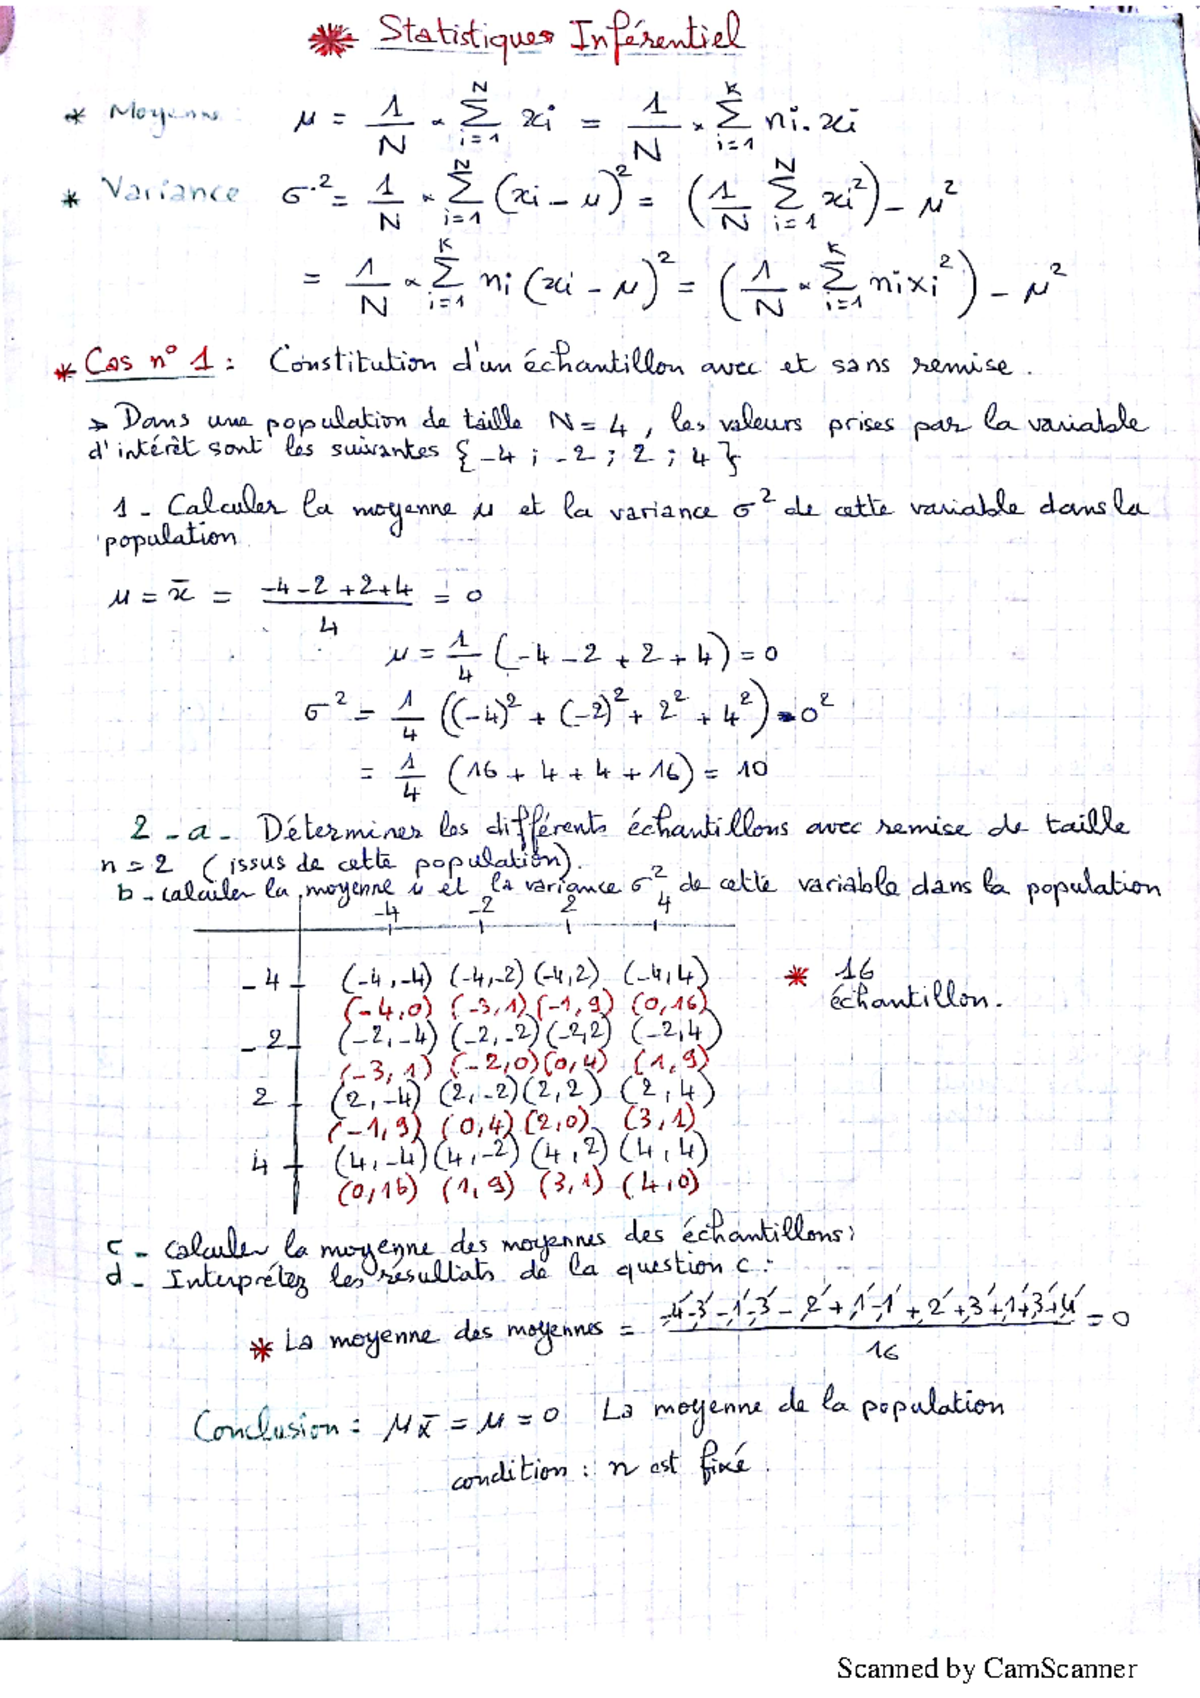 * Statistiques Inférentiel
* Moyenne : μ = 1/N × Σ_{i=1}^{N} xi = 1/N × Σ_{i=1}^{K} ni.xi
* Variance σ² = 1/N × Σ_{i=1}^{N} (xi - μ)² = (1/N Σ_{i=1}^{N} xi²) - μ²
= 1/N × Σ_{i=1}^{K} ni (xi - μ)² = (1/N × Σ_{i=1}^{K} ni xi²) - μ²
* Cas n° 1 : Constitution d'un échantillon avec et sans remise.
> Dans une population de taille N = 4, les valeurs prises par la variable
d'intérêt sont les suivantes {-4 ; -2 ; 2 ; 4}
1 - Calculer la moyenne μ et la variance σ² de cette variable dans la
population.
μ = x̄ = (-4-2+2+4)/4 = 0
μ = 1/4 (-4-2+2+4) = 0
σ² = 1/4 ((-4)² + (-2)² + 2² + 4²) - 0²
= 1/4 (16 + 4 + 4 + 16) = 10
2 - a - Déterminer les différents échantillons avec remise de taille
n = 2 (issus de cette population).
b - calculer la moyenne μ et la variance σ² de cette variable dans la population
-4 -2 2 4
-4 (-4,-4) (-4,-2) (-4,2) (-4,4) * 16
(-4,0) (-3,1) (-1,9) (0,16) échantillon.
-2 (-2,-4) (-2,-2) (-2,2) (-2,4)
(-3,1) (-2,0) (0,4) (1,9)
2 (2,-4) (2,-2) (2,2) (2,4)
(-1,9) (0,4) (2,0) (3,1)
4 (4,-4) (4,-2) (4,2) (4,4)
(0,16) (1,9) (3,1) (4,0)
c - Calculer la moyenne des moyennes des échantillons :
d - Interprétez les résultats de la question c :
* La moyenne des moyennes = (-4-3-1-3-2+1-1+2+3+1+3+4)/16 = 0
Conclusion : μx̄ = μ = 0 La moyenne de la population
condition : n est fixé.
Scanned by CamScanner